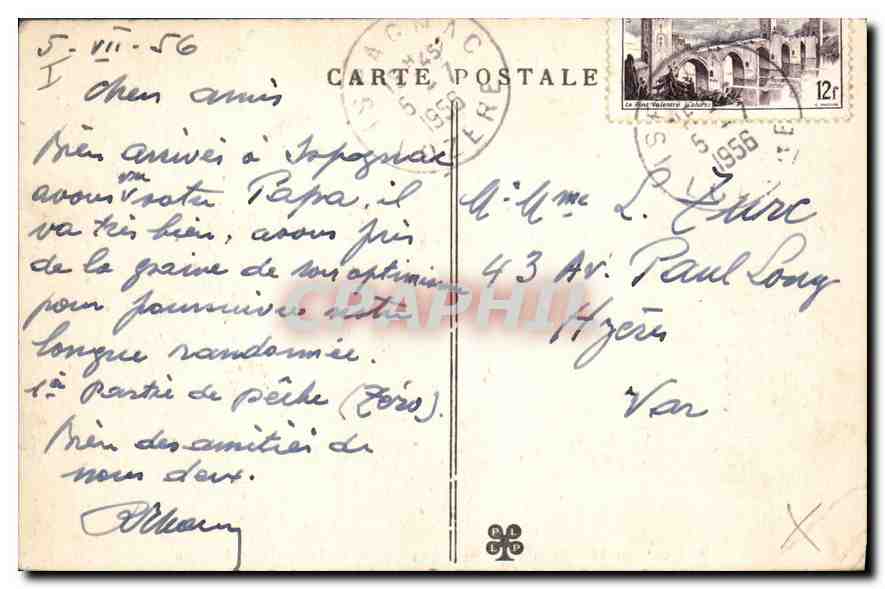 5-VII-56
I
CARTE POSTALE
ISPAGNAC
15H 45
5-7
1956
LOZERE
Le Pont Valentré (Cahors)
12F
5-7
1956
chers amis
Bien arrivés à Ispagnac
avons vu votre Papa, il
va très bien, avons pris
de la graine de son optimisme
pour poursuivre notre
longue randonnée.
1è Partie de pêche (Zéro).
Bien des amitiés de
nous deux.
Mr Mme L. Turc
43 Av. Paul Long
Hyères
Var
CPAPHIL
PLLP
X